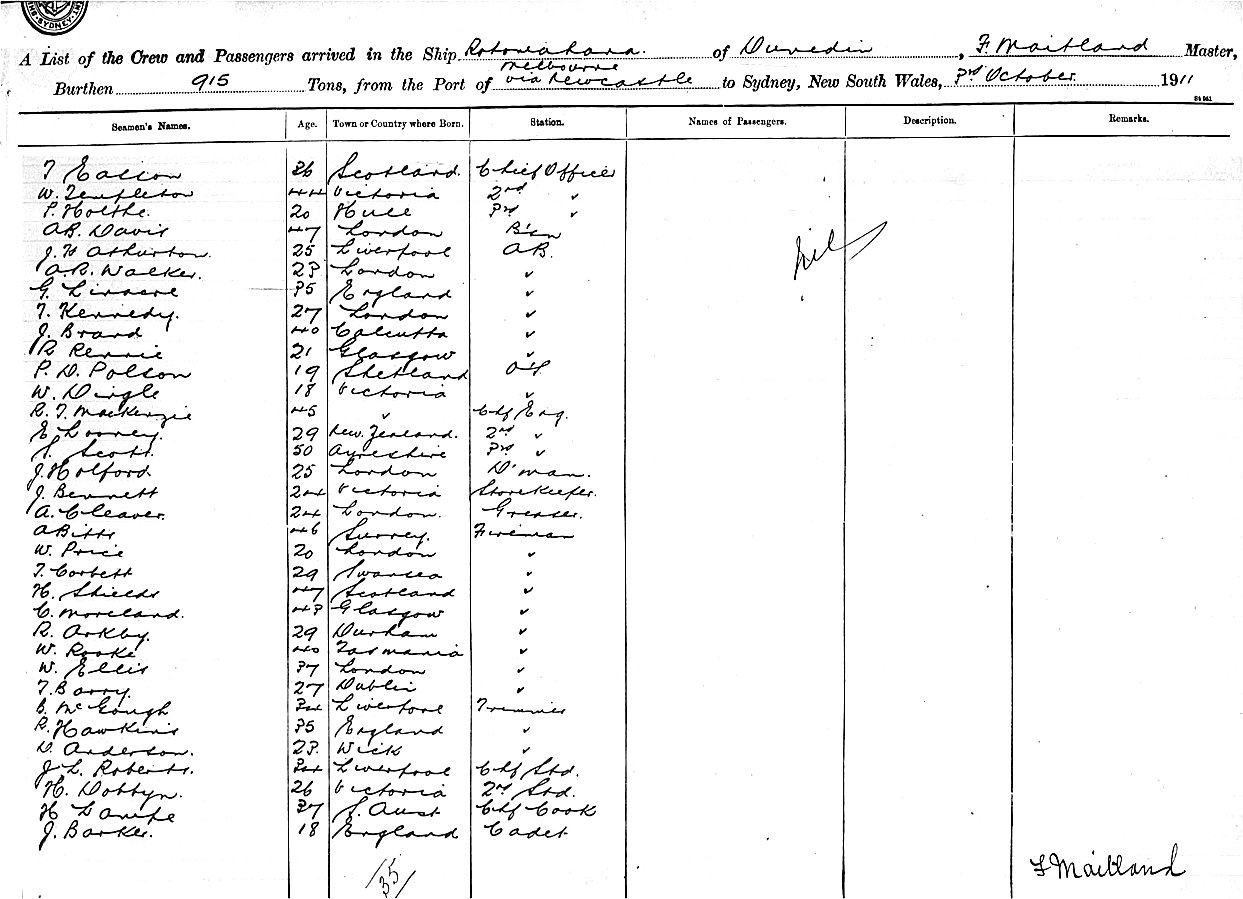 SYDNEY
A List of the Crew and Passengers arrived in the Ship Rotomahana of Dunedin, F. Maitland Master,
Melbourne
Burthen 915 Tons, from the Port of via Newcastle to Sydney, New South Wales, 3rd October 1911
Seamen's Names. Age. Town or Country where Born. Station. Names of Passengers. Description. Remarks.
T Easson 36 Scotland. Chief Officer
W. Templeton 44 Victoria 2nd "
P. Holthe. 20 Hull 3rd "
AB. Davis 47 London B'sn
J. H Atharton. 25 Liverpool AB.
A. R. Walker. 23 London "
nil
G. Linacre 35 England "
T. Kennedy. 27 London "
J. Brand 40 Calcutta "
R Rennie 21 Glasgow "
P. D. Polson 19 Shetland OS
W. Dingle 18 Victoria "
R. T. MacKenzie 45 " Chf Eng.
E Looney. 29 New Zealand. 2nd "
S. Scott. 50 Ayreshire 3rd "
J. Holford 25 London D'man.
J. Bennett 24 Victoria Storekeeper.
A. Cleaver. 24 London. Greaser.
A Bitts 46 Surrey. Fireman
W. Price 20 London "
T. Corbett 29 Swansea "
H. Shields 47 Scotland "
C. Moreland. 43 Glasgow "
R. Arkby. 29 Durham "
W. Rooke 40 Tasmania "
W. Ellis 37 London "
T. Barry. 27 Dublin "
B. McGough 34 Liverpool Trimmer
R. Hawkins 35 England "
D. Anderson. 23. Wick "
J. L. Roberts. 34 Liverpool Chf Std.
H. Dobbyn. 26 Victoria 2nd Std.
H Lampe 37 S. Aust Chf Cook
J. Barker. 18 England Cadet
35
F Maitland